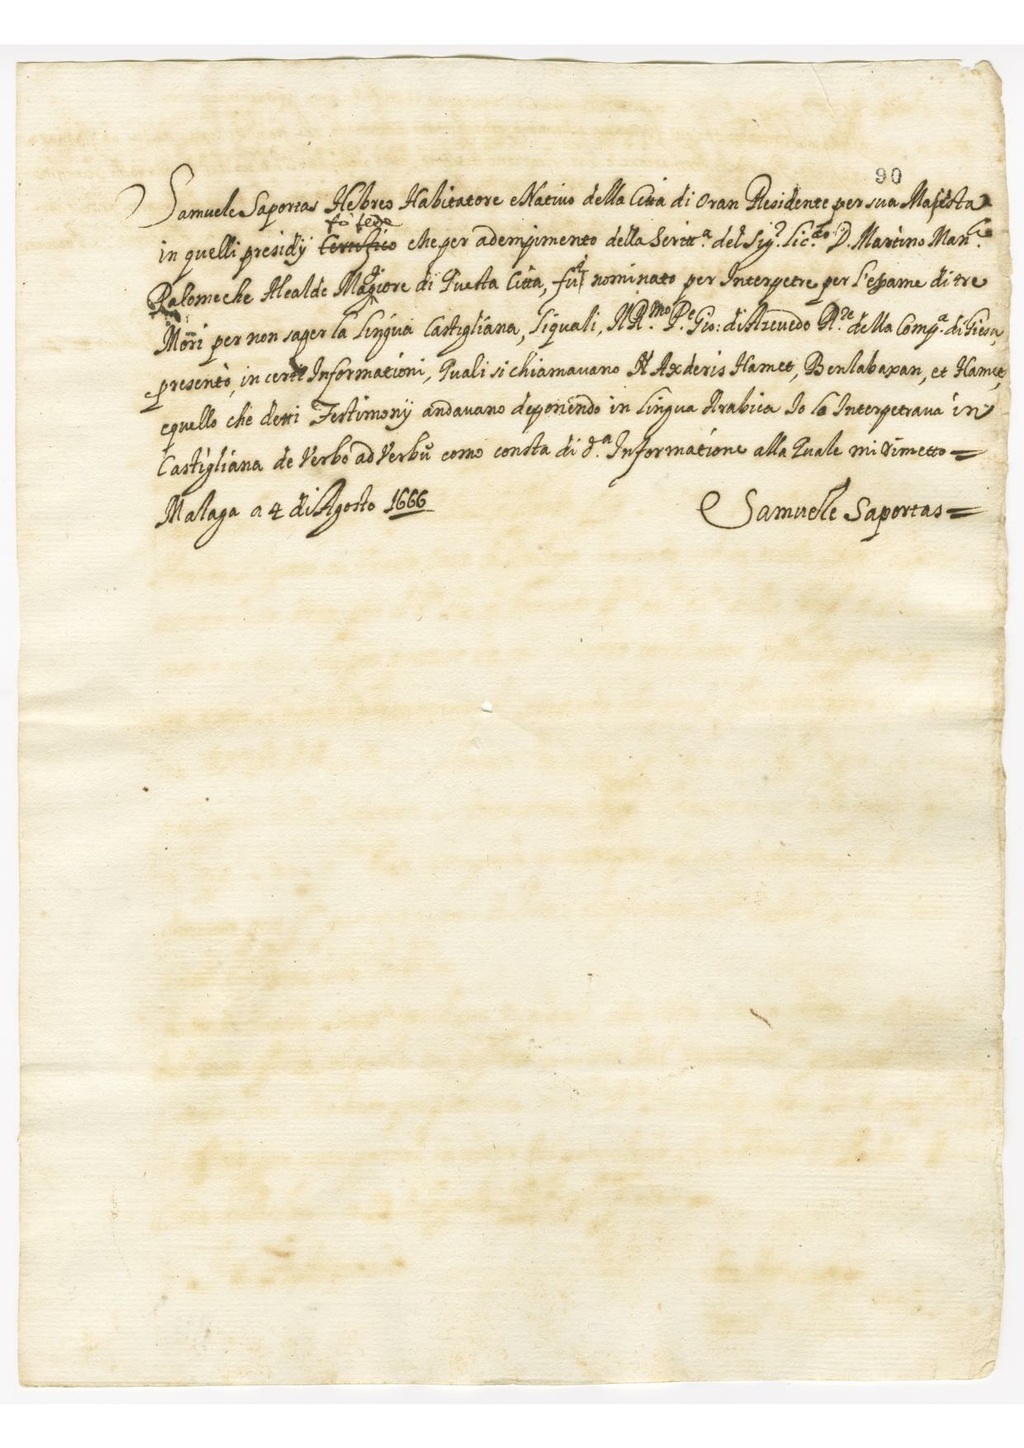 90
Samuele Saportas Hebreo Habitatore e Nativo della Città di Oran Residente per sua Maestà
fò fede
in quelli presidij Certifico che per adempimento della Scritt.ª del Sig.r Lic.do D. Martino Man.co
Palomeche Alcalde Magiore di Questa Città, fui nominato per Interpetre per l'esame di tre
Mori per non saper la Lingua Castigliana, li quali, Il R.mo P.e Gio: di Azevedo R.re della Comp.ª di Giesu,
presentò, in certe Informationi, Quali si chiamavano Axderis Hamet, Benlabaxan, et Hamet,
e quello che detti Testimonij andavano deponendo in Lingua Arabica Io lo Interpetrava in
Castigliana de Verbo ad Verbũ como consta di d.ª Informatione alla Quale mi rimetto =
Malaga a 4 di Agosto 1666
Samuele Saportas =